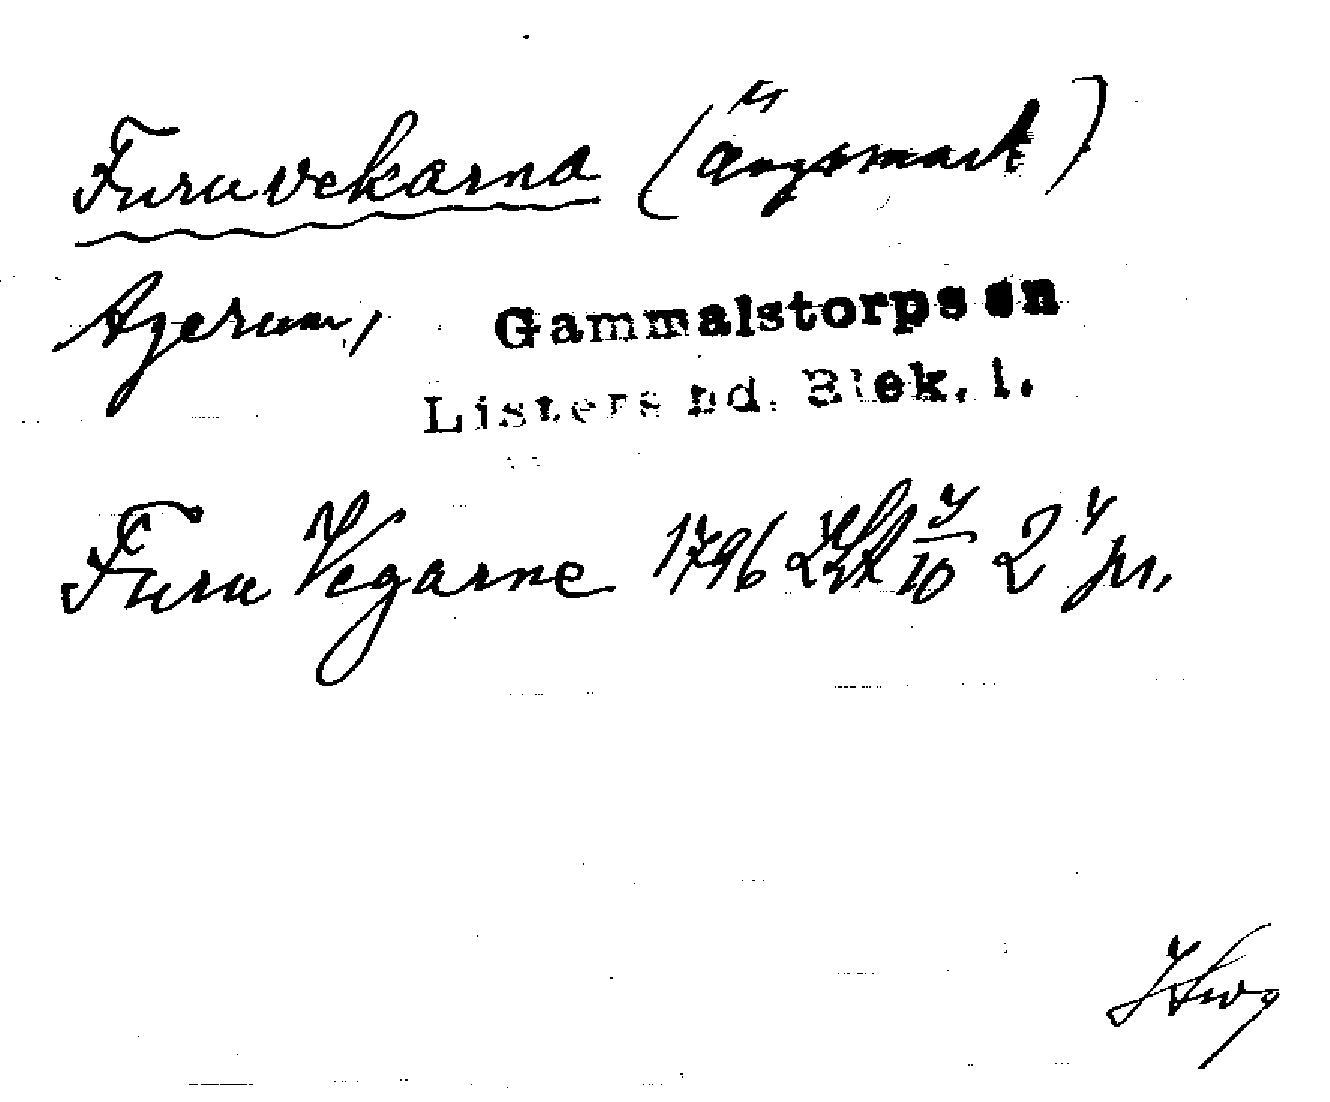 Furuvekarna (Ängsmark)
Agerum, Gammalstorps sn
Listers hd. Blek. l.
Furu Vegarne 1796 LSk 3/10 2 pr.